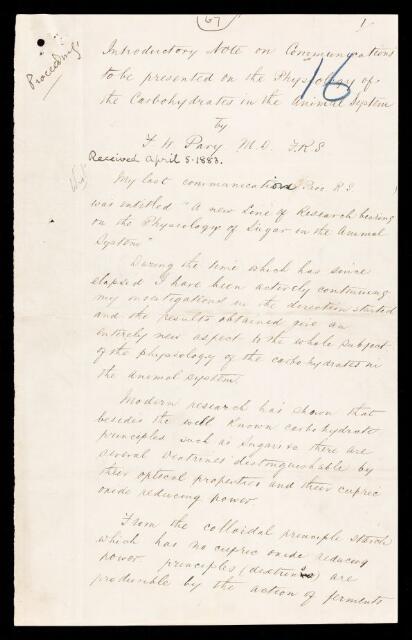 67
1
Proceedings
Introductory Note on Communications
to be presented on the Physiology of
16
the Carbohydrates in the Animal System
by
F. W. Pavy M.D. F.R.S
Received April 5. 1883.
My last communication Proc. R.S.
was entitled "A new line of Research bearing
on the Physiology of Sugar in the Animal
System"
During the time which has since
elapsed I have been actively continuing
my investigations in the direction started
and the results obtained give an
entirely new aspect to the whole subject
of the physiology of the carbohydrates in
the animal system.
Modern research has shown that
besides the well known carbohydrate
principles such as sugars &c there are
several dextrines distinguishable by
their optical properties and their cupric
oxide reducing power.
From the colloidal principle starch
which has no cupric oxide reducing
power principles (dextrins) are
producible by the action of ferments